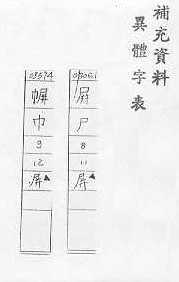 補充資料
異體字表
屏
尸
8
11
屏▲
03674
幈
巾
9
12
屏▲